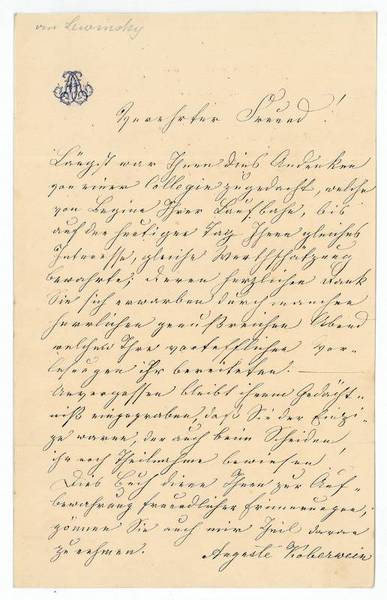 an Lewinsky
Verehrter Freund!
Längst war Ihnen dies Andenken
von einer Collegin zugedacht, welche
von Beginn Ihrer Laufbahn, bis
auf den heutigen Tag Ihnen gleiches
Interesse, gleiche Werthschätzung
bewahrte; deren herzlichen Dank
Sie sich erwarben durch manchen
herrlichen genußreichen Abend
welchen Ihre vortefflichen Vor-
lesungen ihr bereiteten. —
Unvergessen bleibt ihrem Gedächt-
niß eingegraben, daß Sie der Einzi-
ge waren, der auch beim Scheiden
ihr noch Theilnahme bewiesen!
Dies Buch diene Ihnen zur Auf-
bewahrung freundlicher Erinnerungen,
gönnen Sie auch mir Theil daran
zu nehmen.
Auguste Koberwein